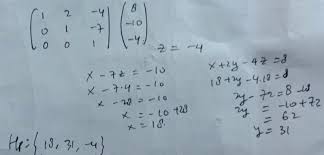 ( 1 2 -4 ) ( 8 )
( 0 1 -7 ) ( -10 )
( 0 0 1 ) ( -4 )
z = -4
x - 7z = -10
x - 7.4 = -10
x - 28 = -10
x = -10 + 28
x = 18
x + 2y - 4z = 8
18 + 2y - 4.18 = 8
2y - 72 = 8 - 18
2y = -10 + 72
= 62
y = 31
Hp: { 18, 31, -4 }